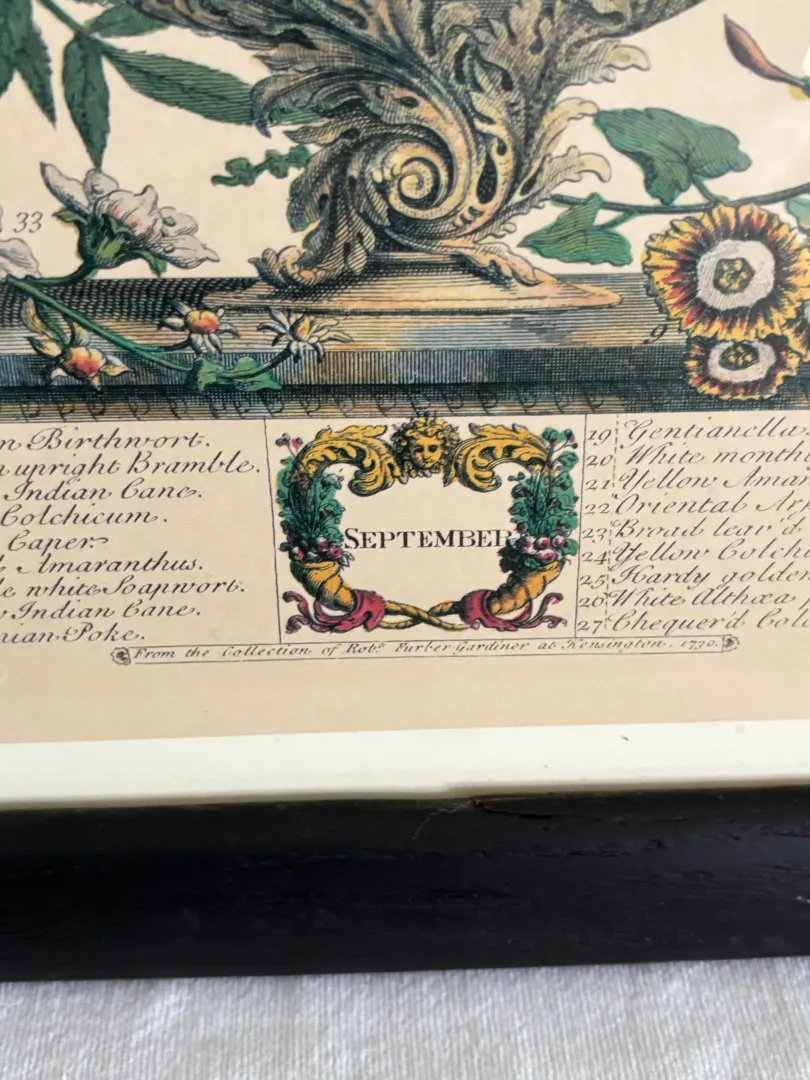 33
9
n Birthwort.
upright Bramble.
Indian Cane.
Colchicum.
Caper.
Amaranthus.
le white Soapwort.
Indian Cane.
uian Poke.
SEPTEMBER
19 Gentianella.
20 White month
21 Yellow Amar
22 Oriental
23 Broad leav'd
24 Yellow Colch
25 Hardy golden
26 White Althæa
27 Chequer'd Col
From the Collection of Robt. Furber Gardiner at Kensington. 1730.